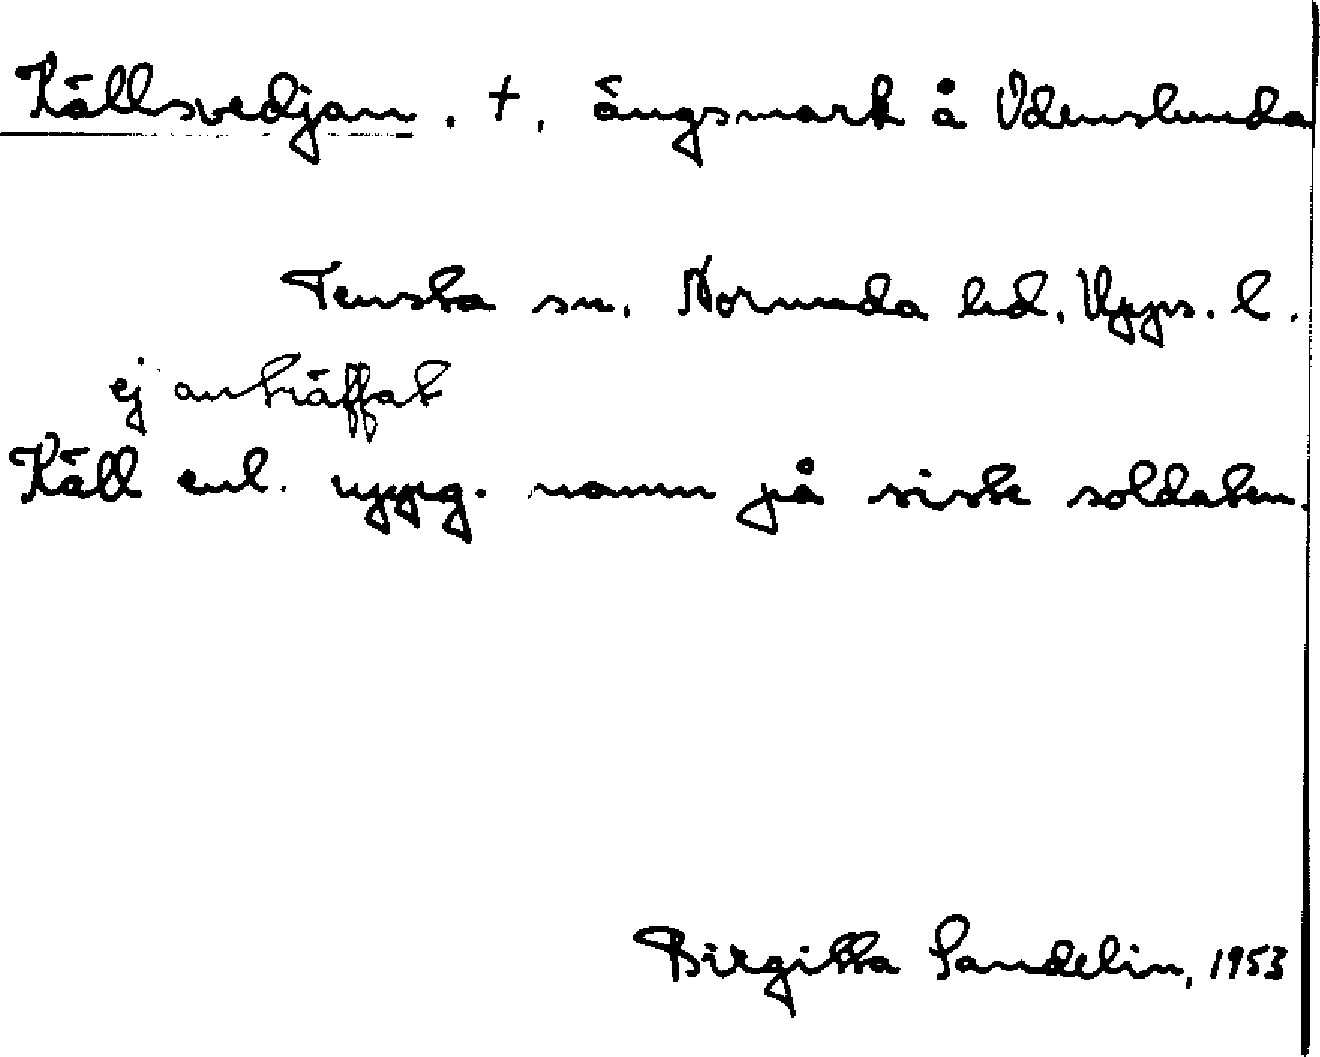 Källsvedjan. +, ängsmark å Odenslunda
Tensta sn. Norunda hd. Upps. l.
ej anträffat
Käll enl. uppg. namn på siste soldaten.
Birgitta Sandelin, 1953